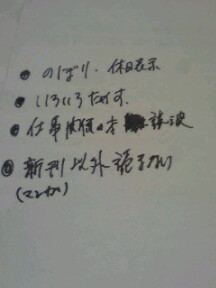 ● のぼり、休日表示
● いろいろためす.
● 仕事関係の本 譲渡
● 新刊以外読まない
(マンガ)